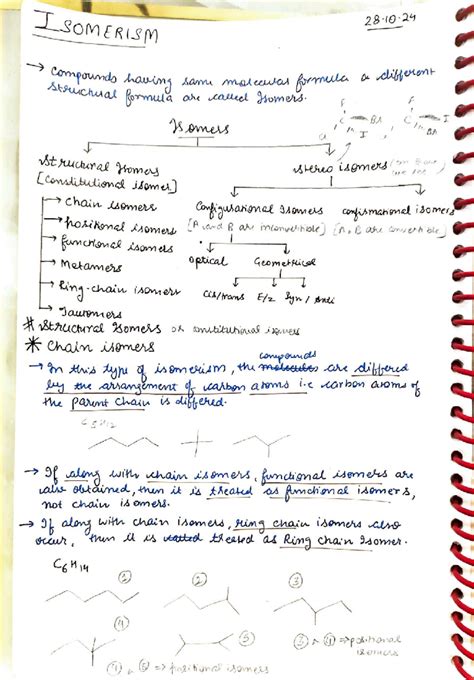 ISOMERISM
28.10.24
→ Compounds having same molecular formula & different
structural formula are called Isomers.
Isomers
Structural Isomers
[Constitutional isomer]
stereo isomers
F
Cl
H
Br
I
F
C
H
I
Br
→ Chain isomers
→ positional isomers
→ functional isomers
→ Metamers
→ Ring-chain isomers
→ Tautomers
Configurational Isomers
[A and B are inconvertible]
confirmational isomers
[A, B are convertible]
Optical
Geometrical
Cis/trans
E/Z
Syn / Anti
# Structural Isomers or constitutional isomers
* Chain isomers
→ In this type of isomerism, the compounds are differed
by the arrangement of carbon atoms i.e carbon atoms of
the parent chain is differed.
C5H12
→ If along with chain isomers, functional isomers are
also obtained, then it is treated as functional isomers,
not chain isomers.
→ If along with chain isomers, ring chain isomers also
occur, then it is treated as Ring Chain Isomer.
C6H14
②
③
④
⑤
③ & ④ ⇒ positional
isomers
⇒ positional isomers